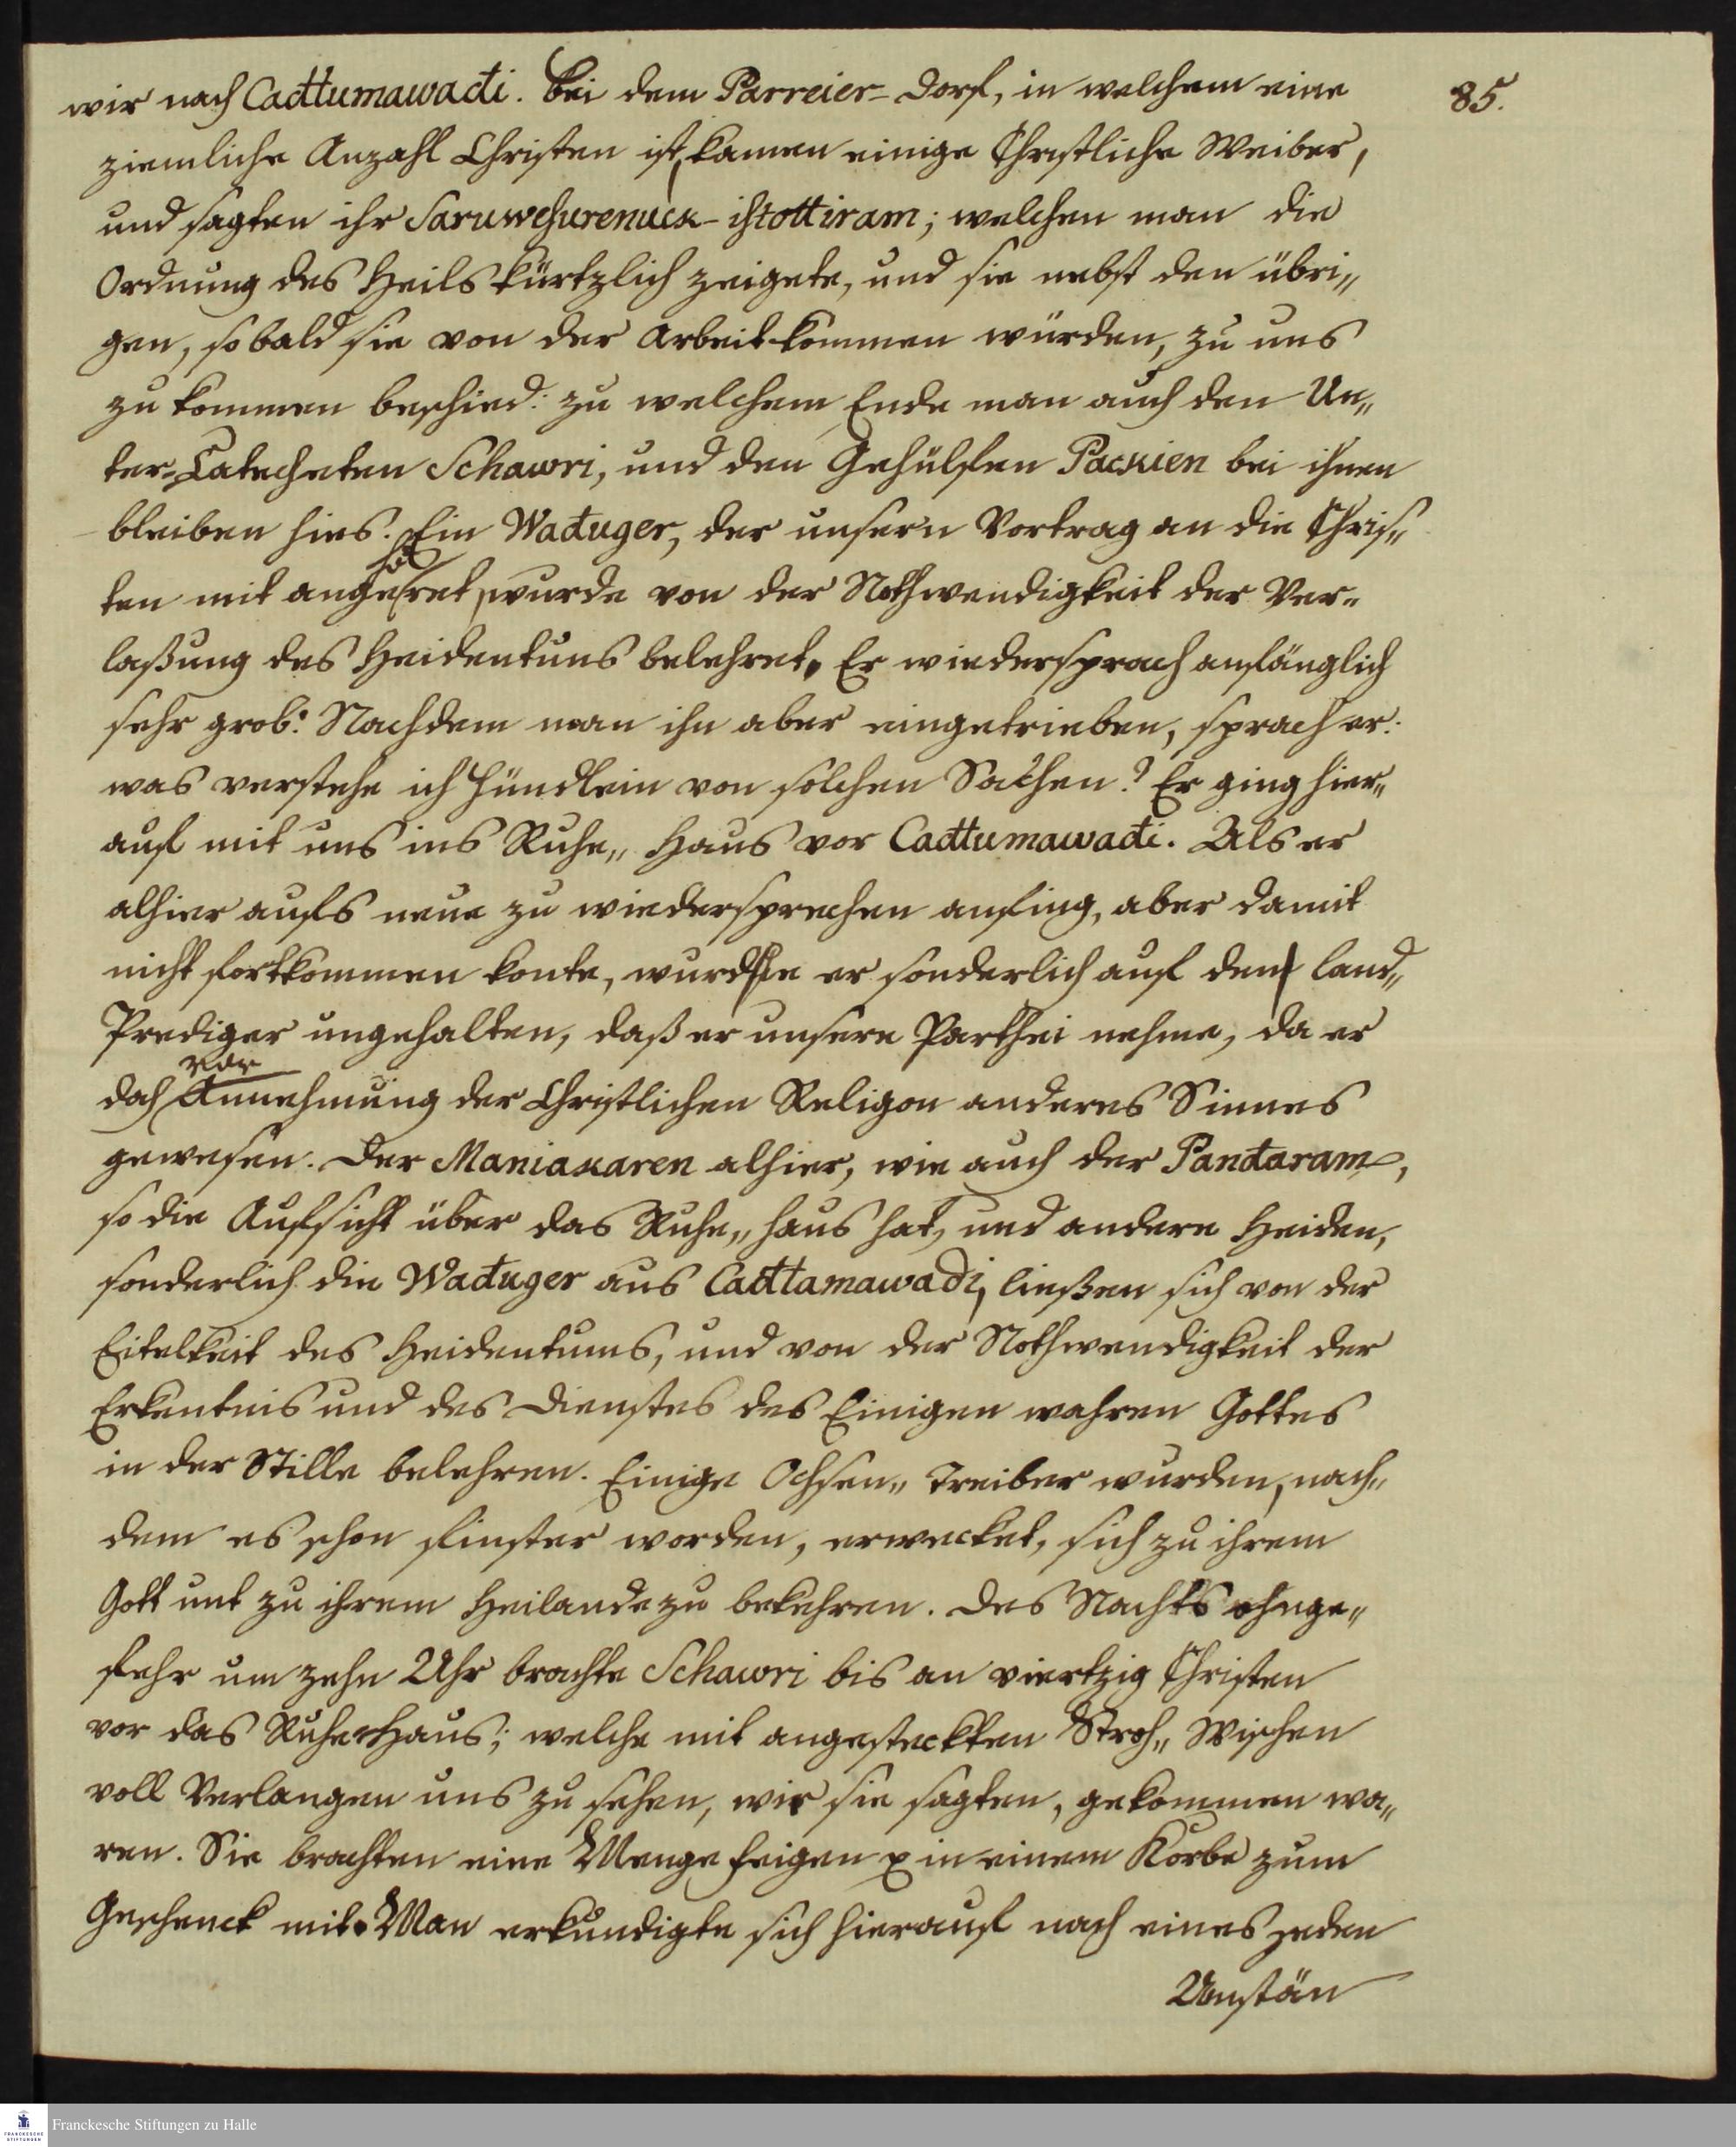 85.
wir nach Cadttumawadi. Bei dem Parreier-Dorf, in welchem eine
ziemliche Anzahl Christen ist, kamen einige Christliche Weiber,
und sagten ihr Saruwesurenuck-istottiram; welchen man die
Ordnung des Heils kürtzlich zeigete, und sie nebst den übri„
gen, sobald sie von der Arbeit kommen würden, zu uns
zu kommen beschied: zu welchem Ende man auch den Un„
ter-Catecheten Schawri, und den Gehülfen Packien bei ihnen
bleiben hies. Ein Waduger, der unsern Vortrag an die Chris„
ten mit angehöret, wurde von der Nothwendigkeit der Ver„
laßung des Heidentums belehret. Er wiedersprach anfänglich
sehr grob: Nachdem man ihn aber eingetrieben, sprach er:
was verstehe ich Hündlein von solchen Sachen? Er ging hier„
auf mit uns ins Ruhe„ Haus vor Cadttumawadi. Als er
alhier aufs neue zu wiedersprechen anfing, aber damit
nicht fortkommen konte, wurde er sonderlich auf den Land„
Prediger ungehalten, daß er unsere Parthei nehme, da er
doch vor Annehmung der Christlichen Religon anderes Sinnes
gewesen. Der Maniakaren alhier, wie auch der Pandaram,
so die Aufsicht über das Ruhe„ haus hat, und andere Heiden,
sonderlich die Waduger aus Cadttamawadi, ließen sich von der
Eitelkeit des Heidentums, und von der Nothwendigkeit der
Erkentnis und des Dienstes des Einigen wahren Gottes
in der Stille belehren. Einige Ochsen„ Treiber wurden, nach„
dem es schon finster worden, erwecket, sich zu ihrem
Gott unt zu ihrem Heilande zu bekehren. Des Nachts ohnge„
fehr um zehn Uhr brachte Schawri bis an viertzig Christen
vor das Ruhe-Haus; welche mit angesteckten Stroh„ Wischen
voll Verlangen uns zu sehen, wie sie sagten, gekommen wa„
ren. Sie brachten eine Menge Feigen p in einem Korbe zum
Geschenck mit. Man erkundigte sich hierauf nach eines jeden
Umstän
Franckesche Stiftungen zu Halle
FRANCKESCHE STIFTUNGEN